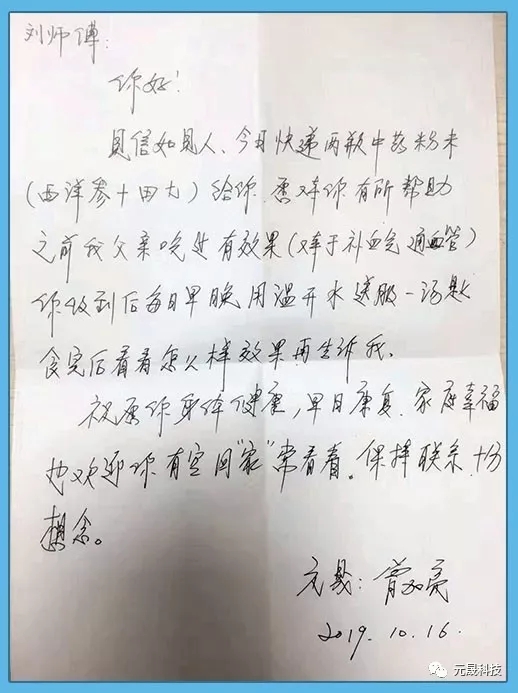 刘师傅:
你好!
见信如见人、今日快递两瓶中药粉末
(西洋参+田七)给你、愿对你有所帮助
之前我父亲吃过有效果(对于补血气通血管)
你收到后每日早晚用温开水送服一汤匙
食完后看看怎么样效果再告诉我、
祝愿你身体健康,早日康复、家庭幸福
也欢迎你有空回"家"常看看。保持联系、十分
想念。
元晟:曾亮
2019.10.16.
元晟科技